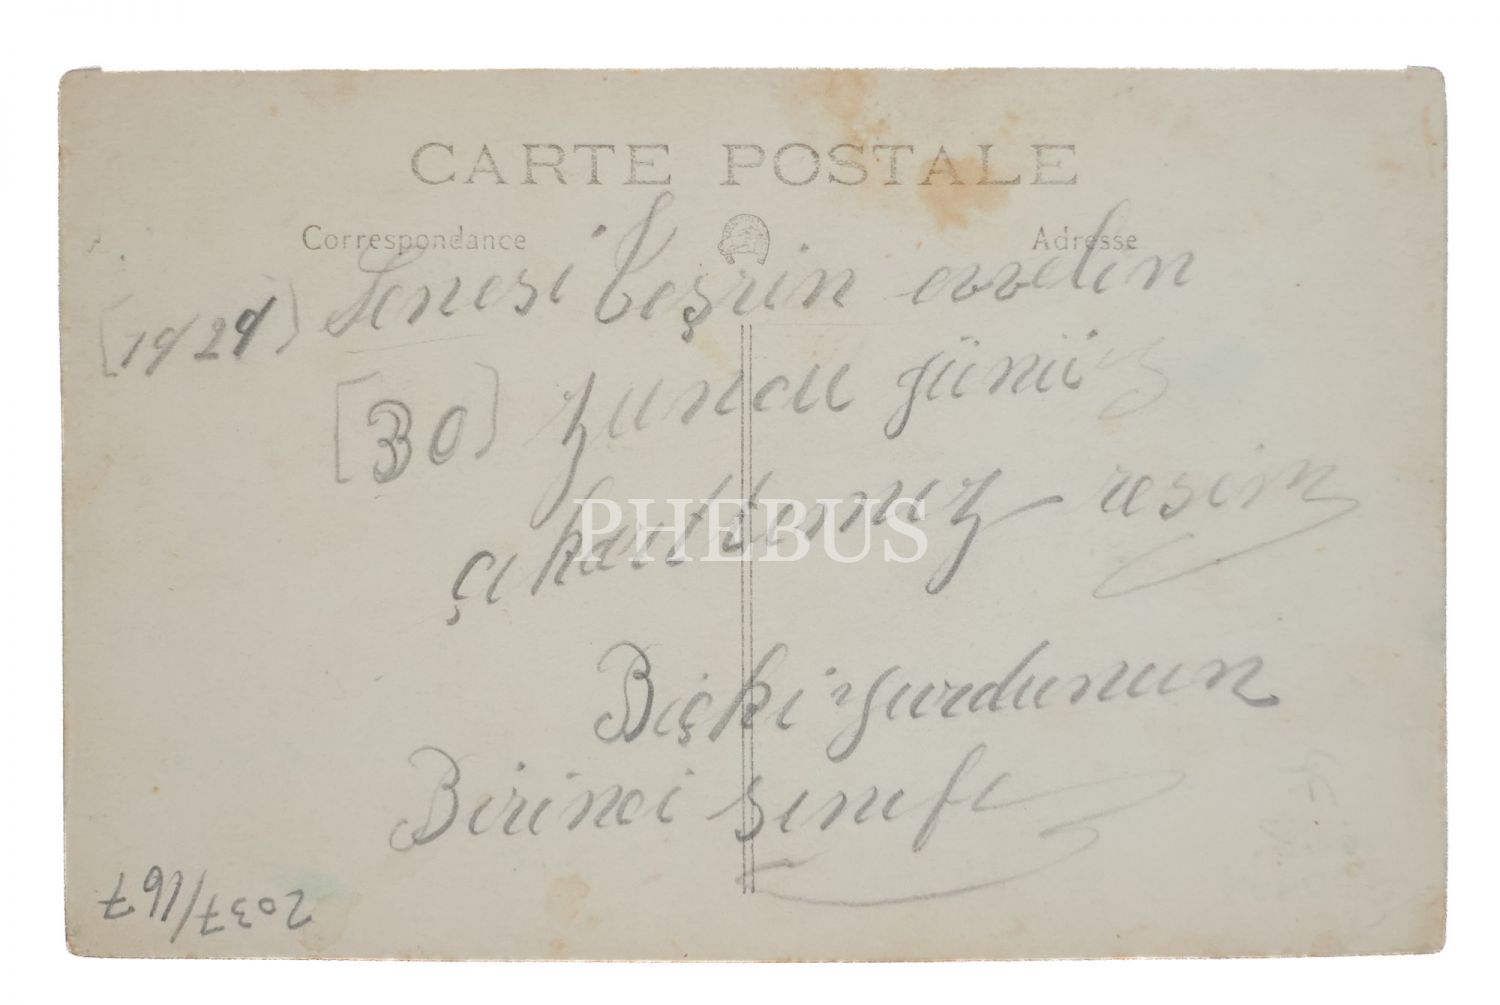 CARTE POSTALE
Correspondance
Adresse
[1929] Senesi Teşrin evvelin
[30] zuncu günü
çıkarttımız resim
PHEBUS
Biçki yurdunun
Birinci sınıfı
2037/167